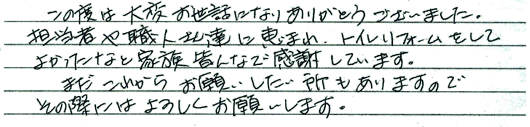 この度は大変お世話になりありがとうございました。
担当者や職人さん達に恵まれ、トイレリフォームをして
よかったなと家族皆んなで感謝しています。
まだこれからお願いしたい所もありますので
その際にはよろしくお願いします。